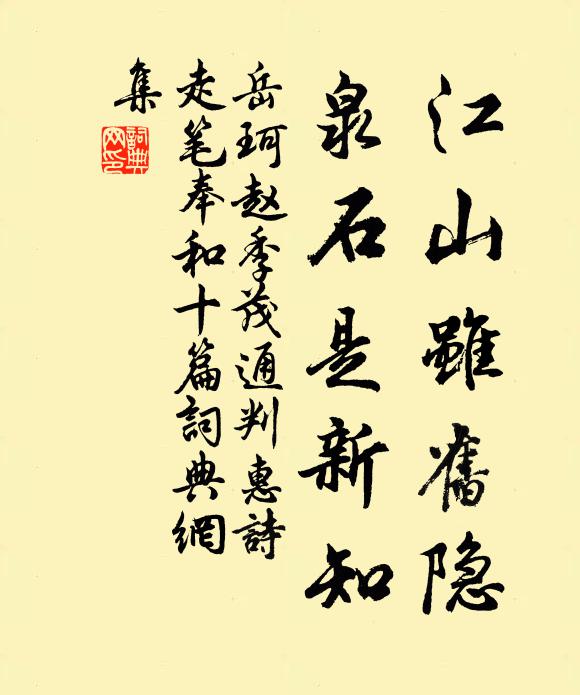 江山雖舊隐
泉石是新知
岳珂赵季茂通判惠詩
走笔奉和十篇詞典網
集
詞典网印